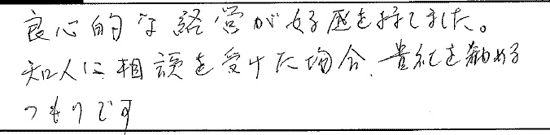 良心的な経営が好感を持てました。
知人に相談を受けた場合、貴社を勧める
つもりです